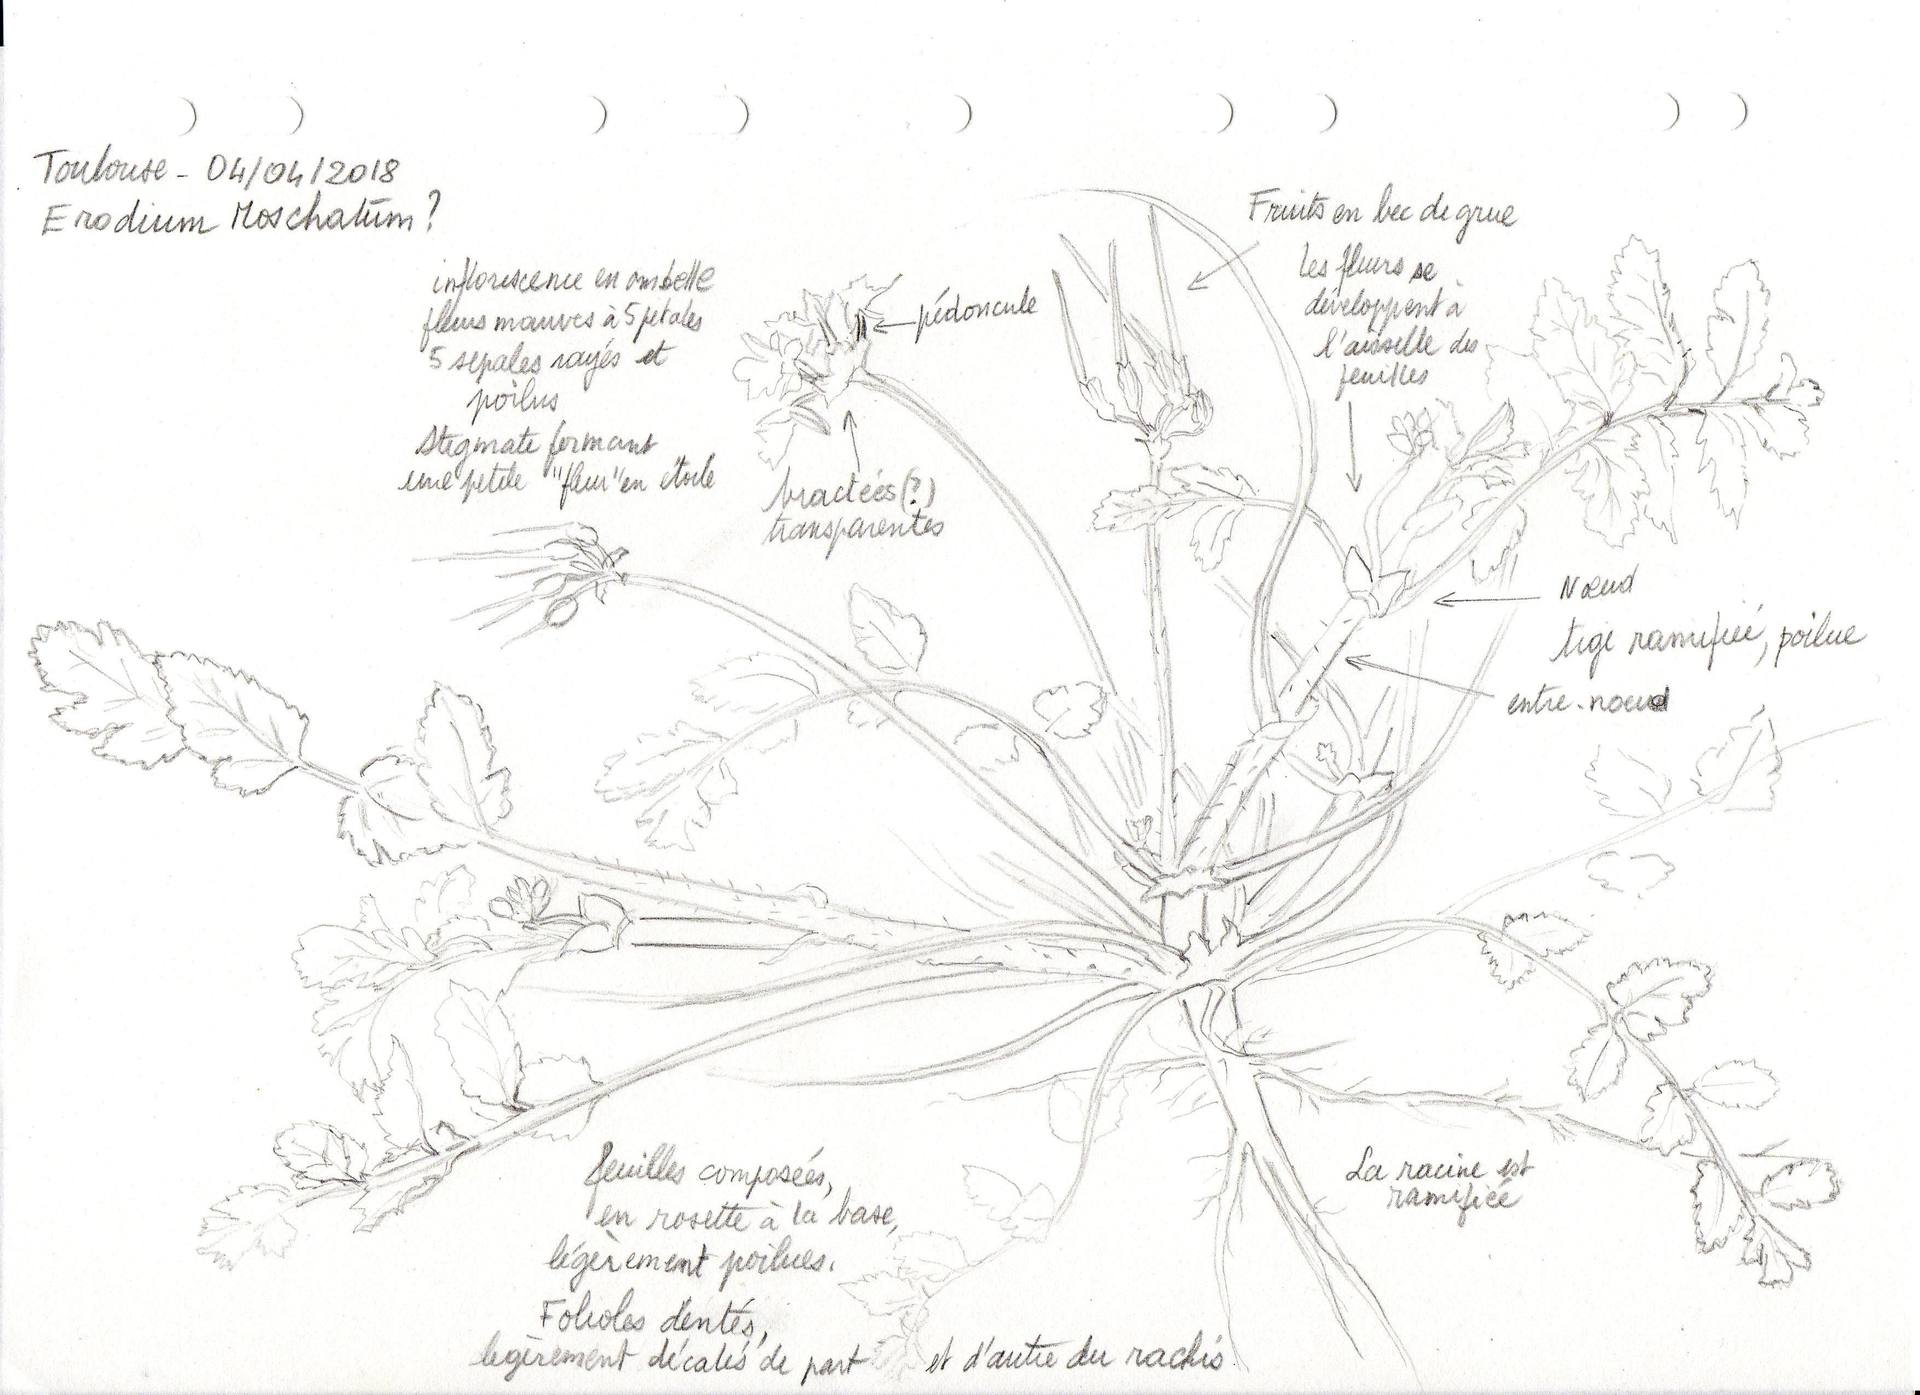 Toulouse - 04/04/2018
Erodium Moschatum?
inflorescence en ombelle
fleurs mauves à 5 pétales
5 sepales rayés et
poilus
Stegmate formant
une petite "fleur" en étoile
pédoncule
bractées (?)
transparentes
Fruits en bec de grue
Les fleurs se
développent à
l'aisselle des
feuilles
Nœud
tige ramifiée, poilue
entre-noeud
La racine est
ramifiée
feuilles composées,
en rosette à la base,
légèrement poilues.
Folioles dentés,
légèrement décalés de part et d'autre du rachis